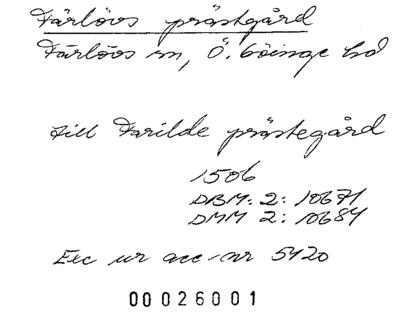 Färlövs prästgård
Färlövs sn, Ö. Göinge hd
till Farilde prästegård
1506
DBM: 2: 10671
DMM 2: 10684
Exc ur acc-nr 5420
00026001